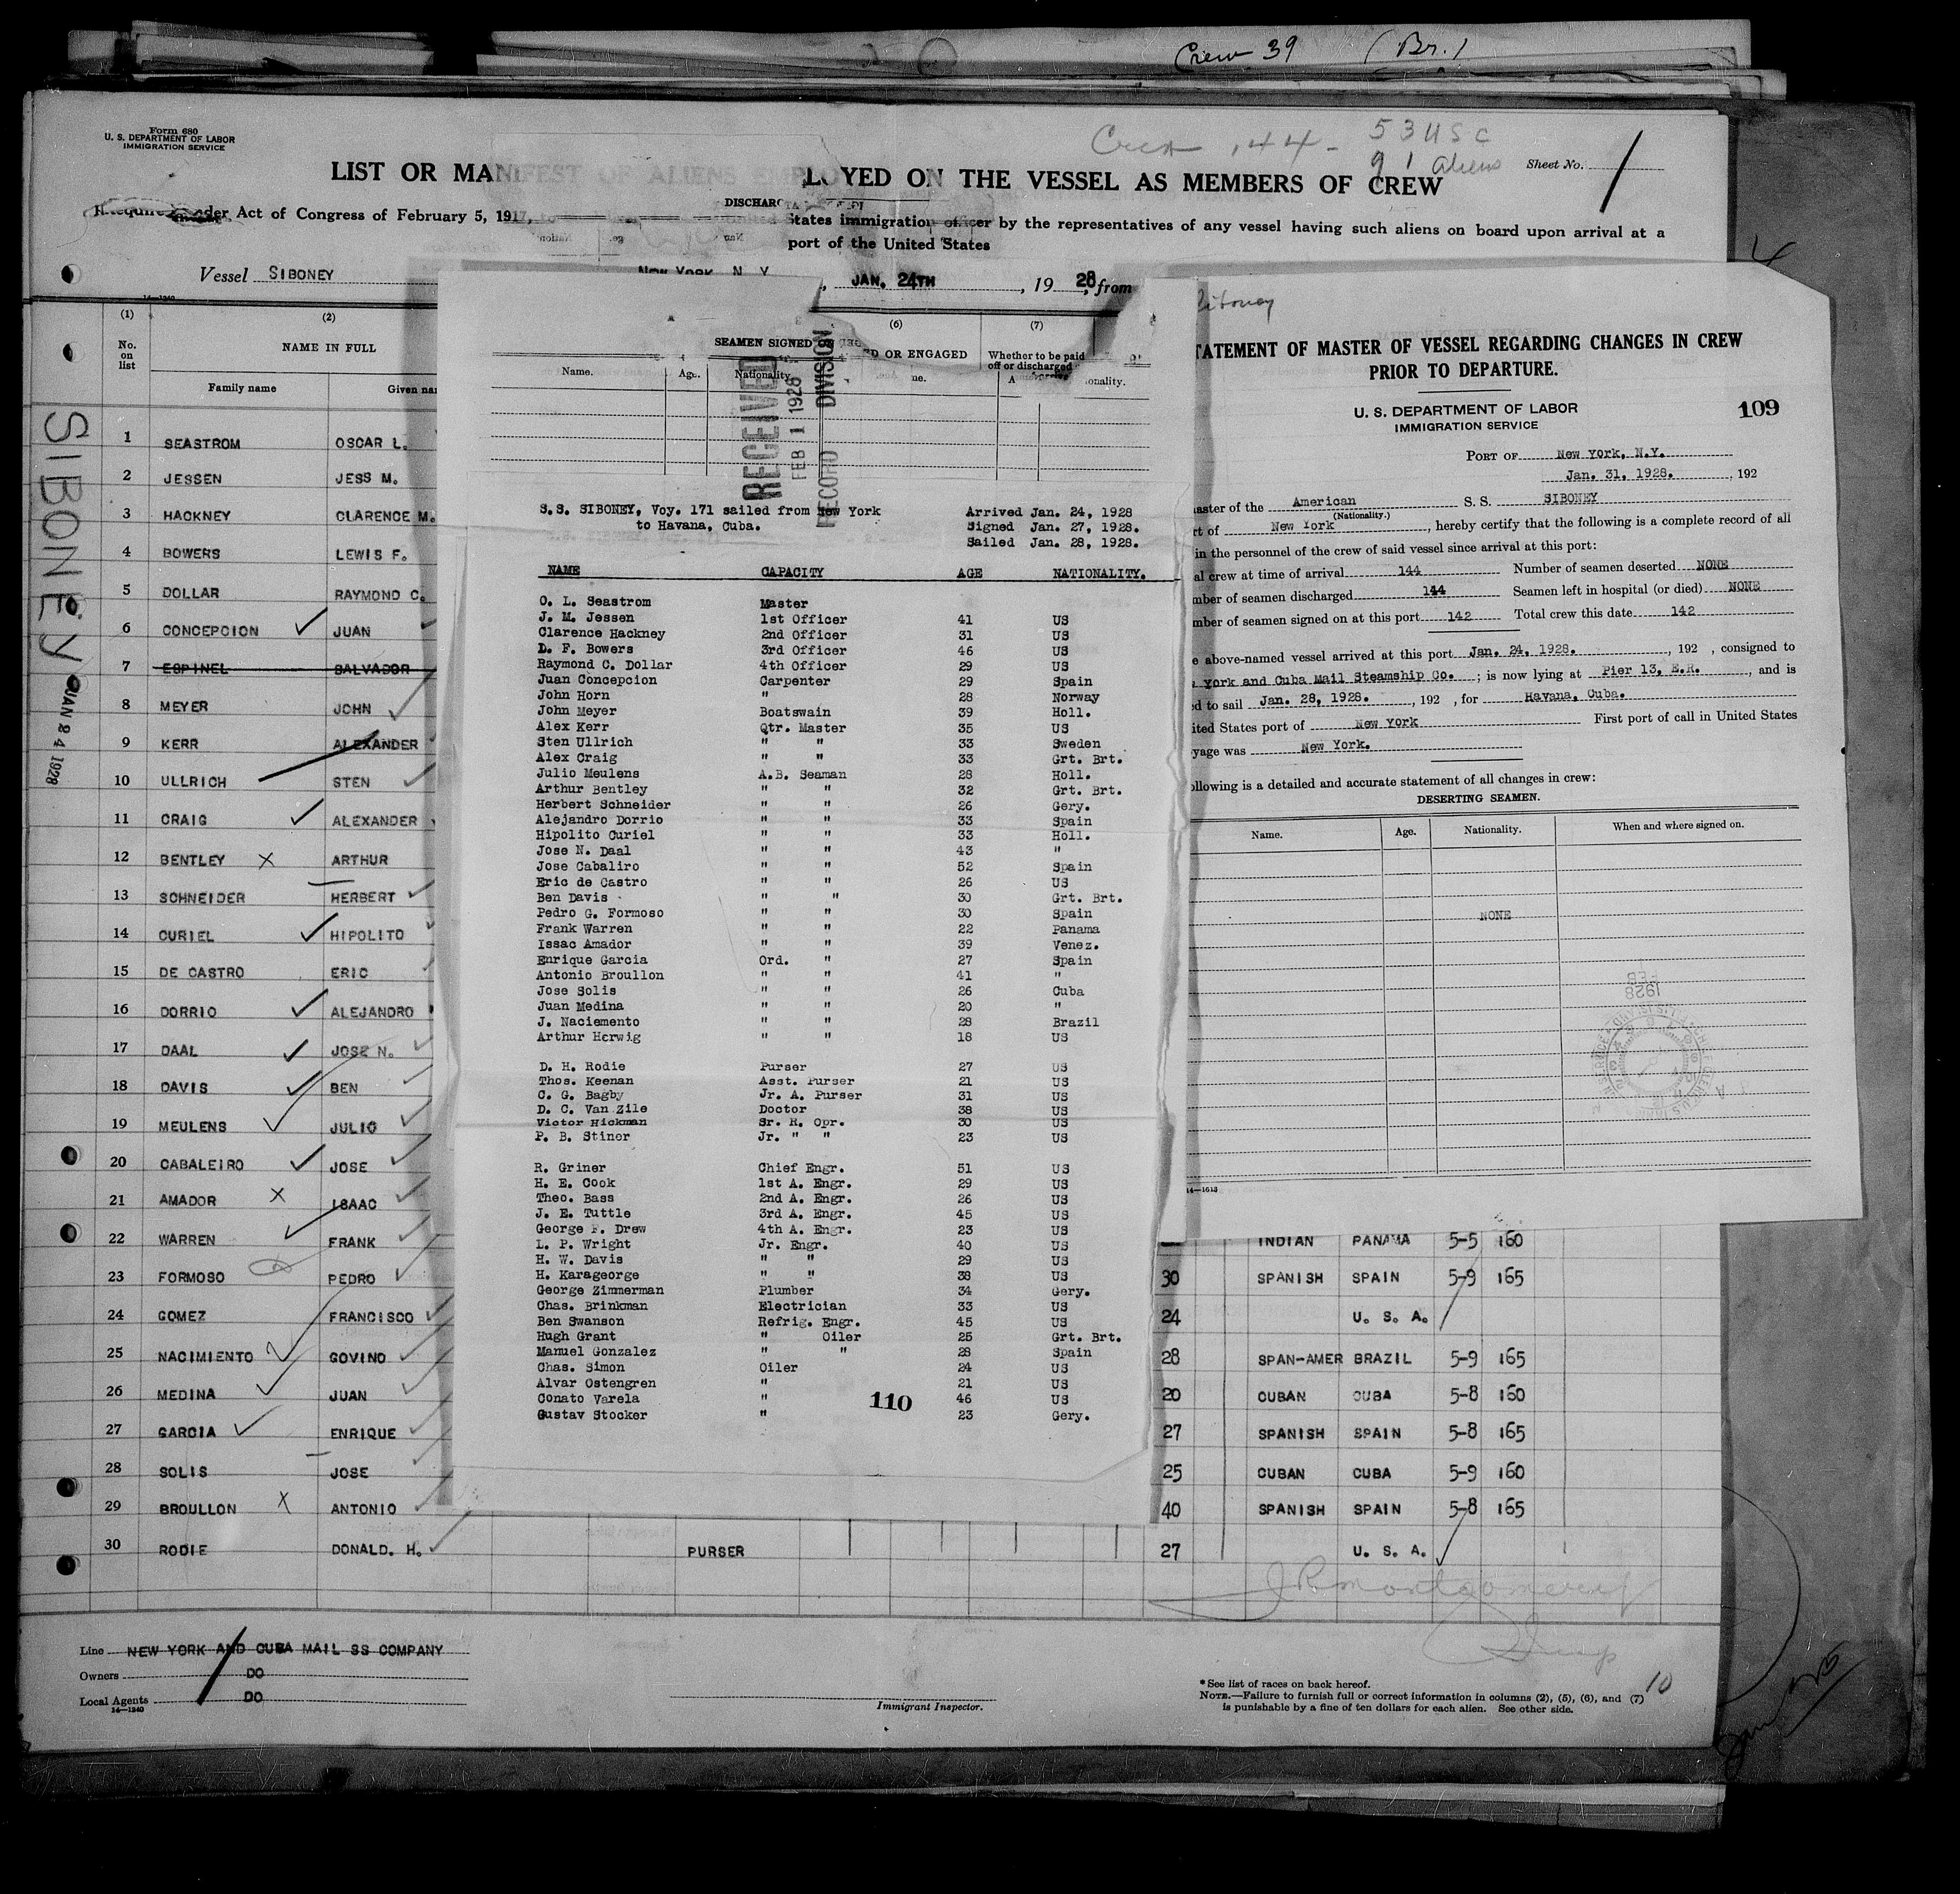 Crew 39 (Br.)
Form 680
U. S. DEPARTMENT OF LABOR
IMMIGRATION SERVICE
Crew 144 - 53 USC
91 aliens
Sheet No. 1
LIST OR MANIFEST OF ALIENS EMPLOYED ON THE VESSEL AS MEMBERS OF CREW
Act of Congress of February 5, 1917,
States immigration officer by the representatives of any vessel having such aliens on board upon arrival at a
port of the United States
Vessel SIBONEY
New York N Y
, JAN. 24TH , 19 28, from
SIBONEY
JAN 24 1928
(1) (2) (6) (7)
No. on list
NAME IN FULL
Family name Given
OR ENGAGED
Whether to be paid off or discharged
1 SEASTROM OSCAR L.
2 JESSEN JESS M.
3 HACKNEY CLARENCE M.
4 BOWERS LEWIS F.
5 DOLLAR RAYMOND C.
6 CONCEPCION JUAN
7 ESPINEL SALVADOR
8 MEYER JOHN
9 KERR ALEXANDER
10 ULLRICH STEN
11 CRAIG ALEXANDER
12 BENTLEY X ARTHUR
13 SCHNEIDER HERBERT
14 CURIEL HIPOLITO
15 DE CASTRO ERIC
16 DORRIO ALEJANDRO
17 DAAL JOSE N.
18 DAVIS BEN
19 MEULENS JULIO
20 CABALEIRO JOSE
21 AMADOR X ISAAC
22 WARREN FRANK
23 FORMOSO PEDRO
24 GOMEZ FRANCISCO
25 NACIMIENTO GOVINO
26 MEDINA JUAN
27 GARCIA ENRIQUE
28 SOLIS JOSE
29 BROULLON X ANTONIO
30 RODIE DONALD. H. PURSER
SEAMEN SIGNED
Name. Age. Nationality.
RECEIVED
FEB 1 1928
RECORD DIVISION
S.S. SIBONEY, Voy. 171 sailed from New York
to Havana, Cuba.
Arrived Jan. 24, 1928
Signed Jan. 27, 1928.
Sailed Jan. 28, 1928.
NAME CAPACITY AGE NATIONALITY.
O. L. Seastrom Master
J. M. Jessen 1st Officer 41 US
Clarence Hackney 2nd Officer 31 US
L. F. Bowers 3rd Officer 46 US
Raymond C. Dollar 4th Officer 29 US
Juan Concepcion Carpenter 29 Spain
John Horn " 28 Norway
John Meyer Boatswain 39 Holl.
Alex Kerr Qtr. Master 35 US
Sten Ullrich " " 33 Sweden
Alex Craig " " 33 Grt. Brt.
Julio Meulens A.B. Seaman 28 Holl.
Arthur Bentley " " 32 Grt. Brt.
Herbert Schneider " " 26 Gery.
Alejandro Dorrio " " 33 Spain
Hipolito Curiel " " 33 Holl.
Jose N. Daal " " 43 "
Jose Cabaliro " " 52 Spain
Eric de Castro " " 26 US
Ben Davis " " 30 Grt. Brt.
Pedro G. Formoso " " 30 Spain
Frank Warren " " 22 Panama
Issac Amador " " 39 Venez.
Enrique Garcia Ord. " 27 Spain
Antonio Broullon " " 41 "
Jose Solis " " 26 Cuba
Juan Medina " " 20 "
J. Naciemento " " 28 Brazil
Arthur Herwig " " 18 US
D. H. Rodie Purser 27 US
Thos. Keenan Asst. Purser 21 US
C. G. Bagby Jr. A. Purser 31 US
D. C. Van Zile Doctor 38 US
Victor Hickman Sr. R. Opr. 30 US
P. B. Stiner Jr. " " 23 US
R. Griner Chief Engr. 51 US
H. E. Cook 1st A. Engr. 29 US
Theo. Bass 2nd A. Engr. 26 US
J. E. Tuttle 3rd A. Engr. 45 US
George F. Drew 4th A. Engr. 23 US
L. P. Wright Jr. Engr. 40 US
H. W. Davis " " 29 US
H. Karageorge " " 38 US
George Zimmerman Plumber 34 Gery.
Chas. Brinkman Electrician 33 US
Ben Swanson Refrig. Engr. 45 US
Hugh Grant " Oiler 25 Grt. Brt.
Manuel Gonzalez " " 28 Spain
Chas. Simon Oiler 24 US
Alvar Ostengren " 21 US
Conato Varela " 46 US
Gustav Stocker " 23 Gery.
110
Siboney
STATEMENT OF MASTER OF VESSEL REGARDING CHANGES IN CREW
PRIOR TO DEPARTURE.
U. S. DEPARTMENT OF LABOR
IMMIGRATION SERVICE
109
PORT OF New York, N.Y.
Jan. 31, 1928. , 192
master of the American S. S. SIBONEY
(Nationality.)
rt of New York , hereby certify that the following is a complete record of all
in the personnel of the crew of said vessel since arrival at this port:
al crew at time of arrival 144 Number of seamen deserted NONE
mber of seamen discharged 144 Seamen left in hospital (or died) NONE
mber of seamen signed on at this port 142 Total crew this date 142
e above-named vessel arrived at this port Jan. 24, 1928. , 192 , consigned to
York and Cuba Mail Steamship Co. ; is now lying at Pier 13, E.R. , and is
ed to sail Jan. 28, 1928. , 192 , for Havana, Cuba.
ited States port of New York First port of call in United States
yage was New York.
ollowing is a detailed and accurate statement of all changes in crew:
DESERTING SEAMEN.
Name. Age. Nationality. When and where signed on.
NONE
14—1613
INDIAN PANAMA 5-5 160
30 SPANISH SPAIN 5-9 165
24 U. S. A.
28 SPAN-AMER BRAZIL 5-9 165
20 CUBAN CUBA 5-8 160
27 SPANISH SPAIN 5-8 165
25 CUBAN CUBA 5-9 160
40 SPANISH SPAIN 5-8 165
27 U. S. A.
J R Montgomery
Line NEW YORK AND CUBA MAIL SS COMPANY
Owners DO
Local Agents DO
14—1240
Immigrant Inspector.
* See list of races on back hereof.
NOTE.—Failure to furnish full or correct information in columns (2), (5), (6), and (7)
is punishable by a fine of ten dollars for each alien. See other side.
10